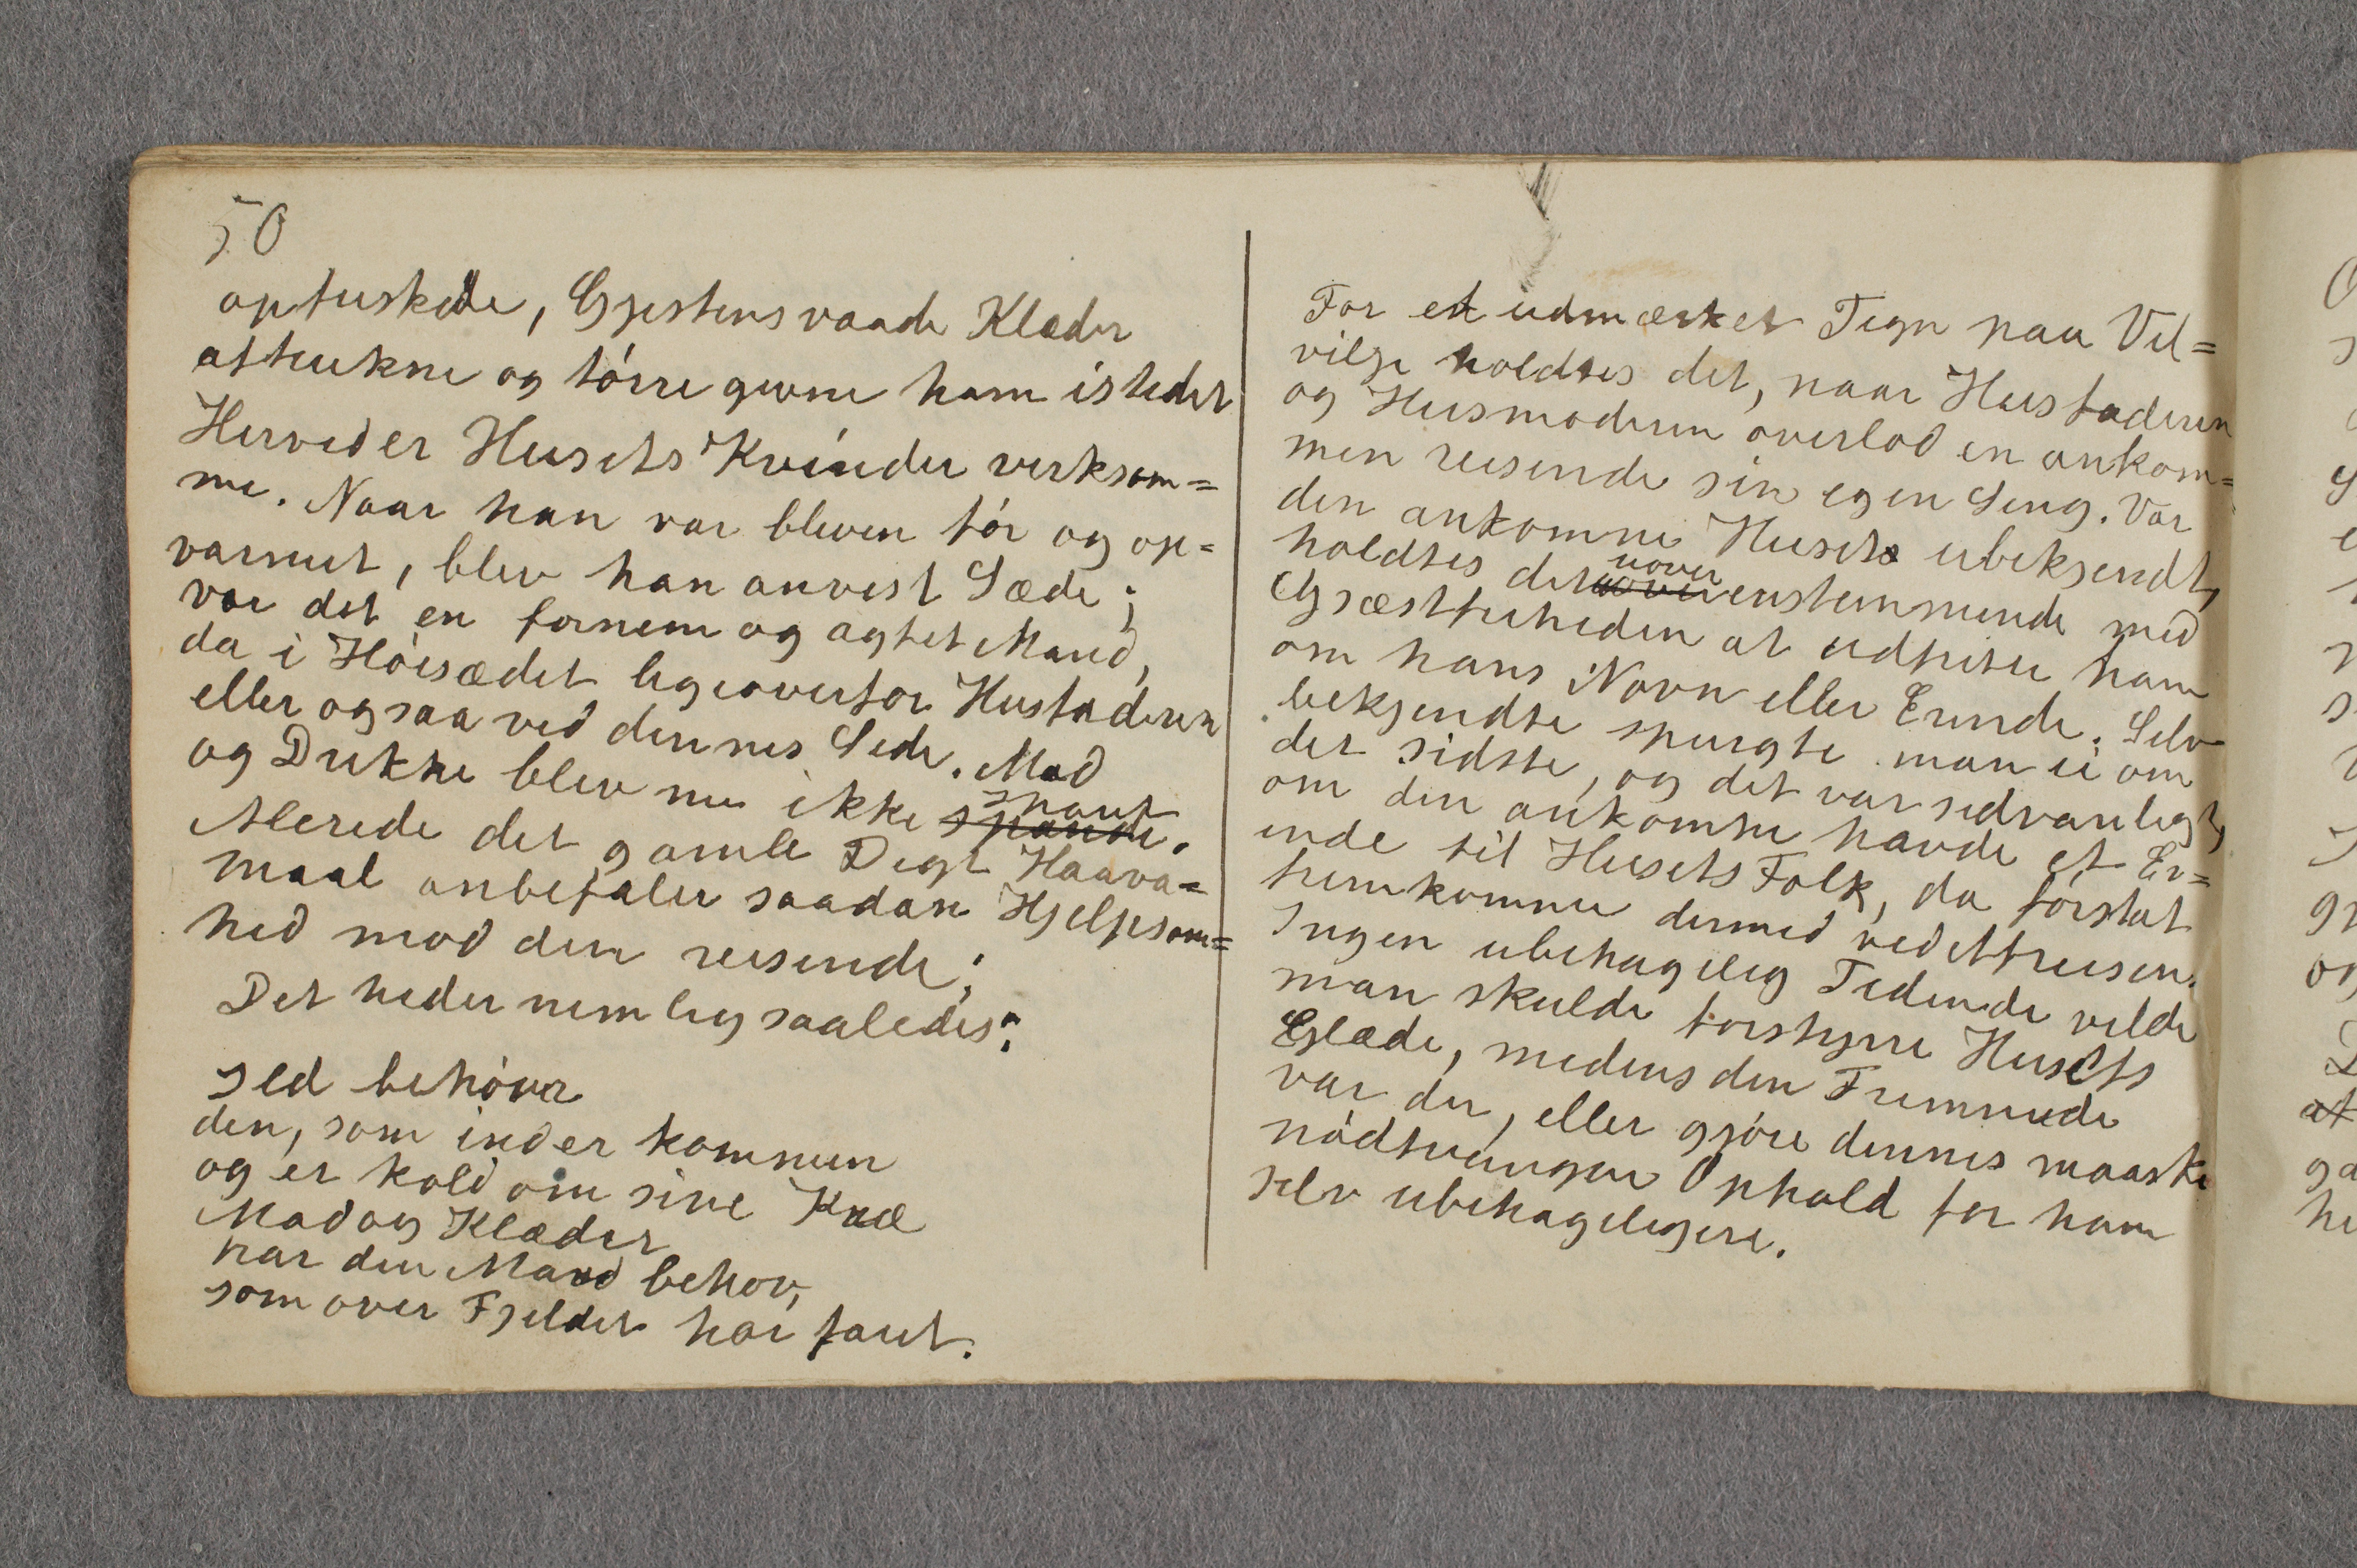 50
opfriskede, Gjestens vaade Klæder
aftrukne og tórre givne ham istedet
Herved er Husets Kvinder verksom=
me. Naar han var bleven tór og op=
varmet, blev han anvist Sæde;
var det en fornem og agtet Mand,
da i Hóisædet ligeoverfor Husfaderen
eller ogsaa ved dennes Side. Mad
og Drikke blev nu ikke spaut
spande.
Allerede det gamle Digt Haava=
maal anbefaler saadan Hjelpsom=
hed mod den reisende;
Det heder nemlig saaledes:
Ild behóver
den, som ind er kommen
og er kold om sine Knæ
Mad og Klæder
har den Mand behov,
som over Fjeldet har faret.
For et udmærket Tegn paa Vel=
vilje holdtes det, naar Husfaderen
og Husmoderen overlod en ankom=
men reisende sin egen Seng. Var
den ankomne Huset ubekjendt,
holdtes det uover
enstemmende med
Gjæstfriheden at udfritte ham
om hans Navn eller Erinde. Selv
bekjendte spurgte man ei om
det sidste, og det var sedvanligt,
om den ankomne havde et Er=
inde til Husets Folk, da fórst at
fremkomme dermed ved Afreisen.
Ingen ubehagelig Tidende vilde
man skulde forstyrre Husets
Glæde, medens den Fremmede
var der, eller gjóre dennes maaske
nódtvungne Ophold for ham
selv ubehageligere.